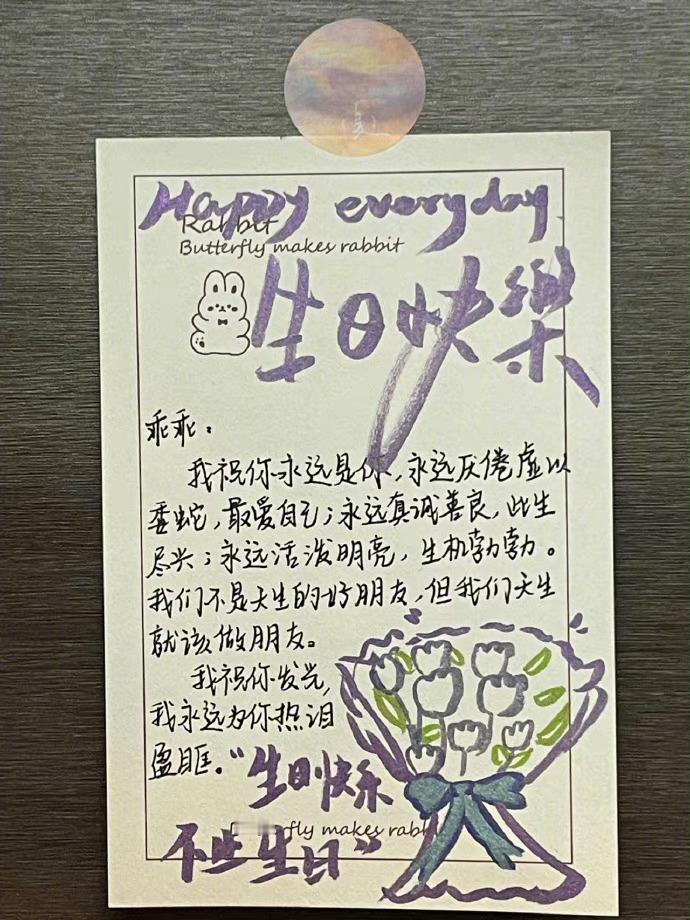 (夏)
Happy everyday
Rabbit
Butterfly makes rabbit
生日快樂
乖乖：
我祝你永远是你，永远厌倦虚以
委蛇，最爱自己；永远真诚善良，此生
尽兴；永远活泼明亮，生机勃勃。
我们不是天生的好朋友，但我们天生
就该做朋友。
我祝你发光，
我永远为你热泪
盈眶。
“生日快乐
fly makes rabb
不止生日”